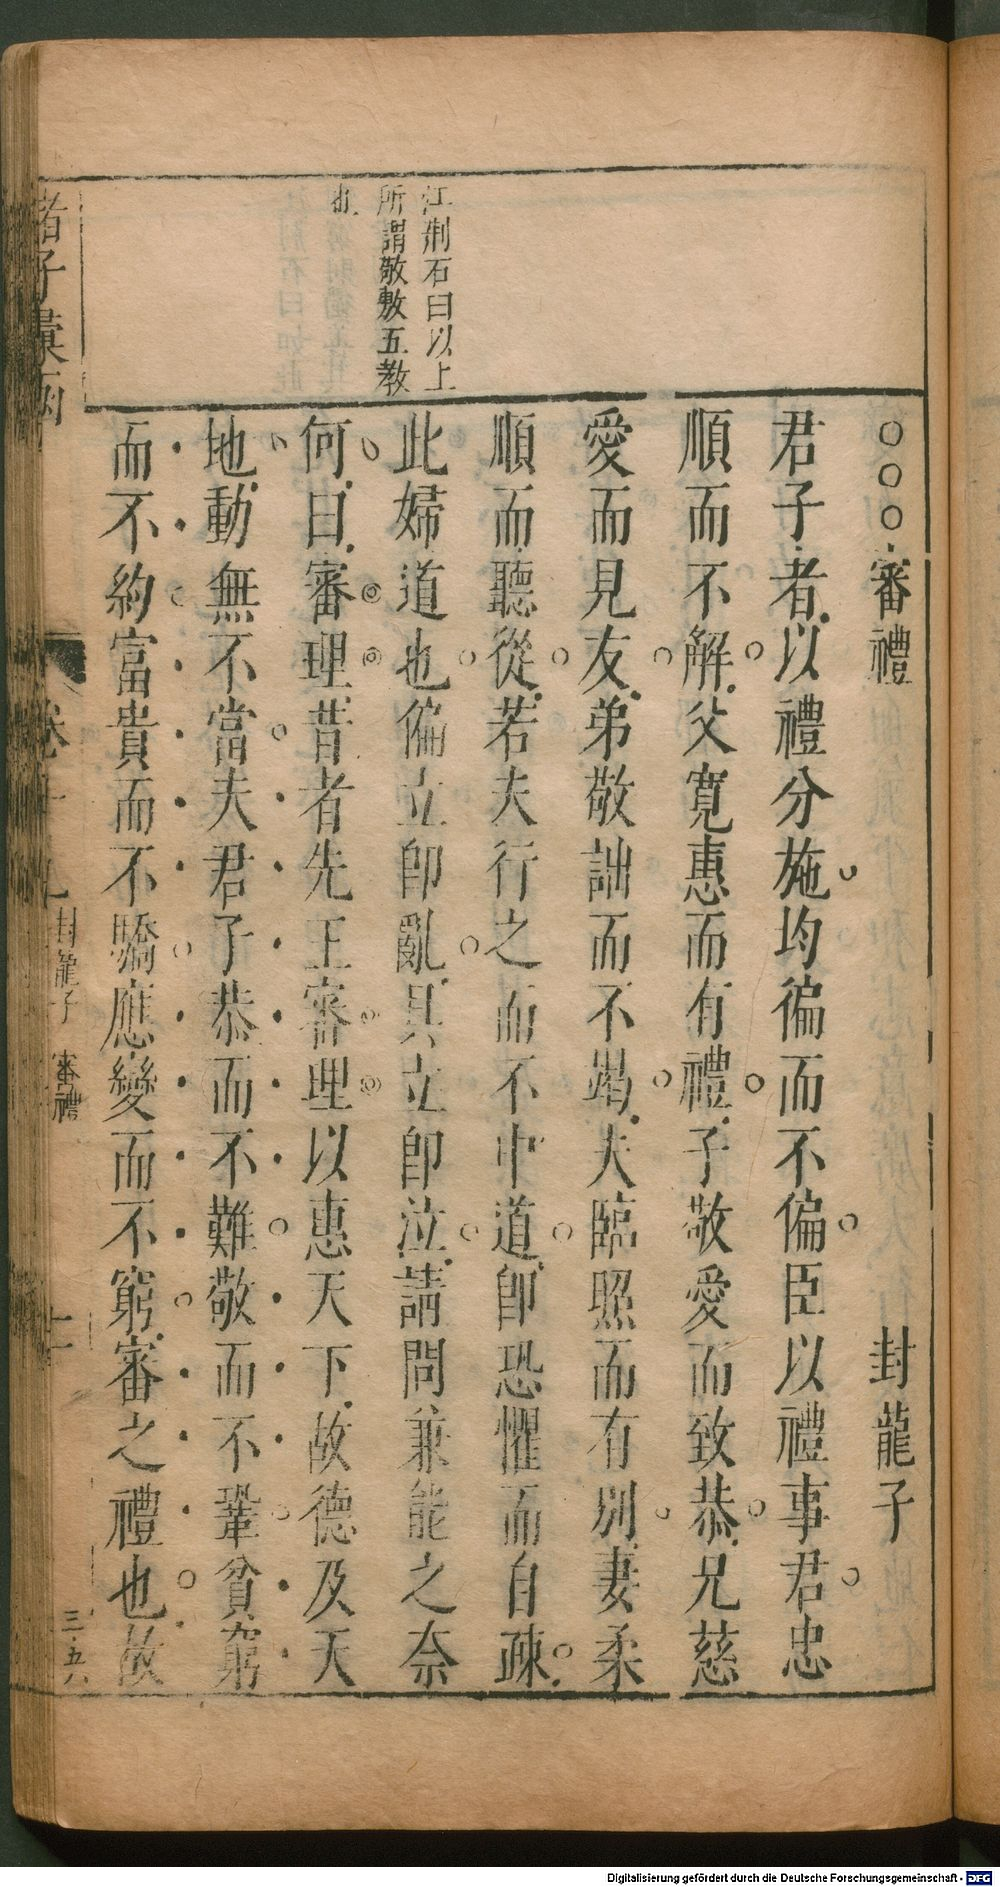 審禮 封龍子
君子者以禮分施均徧而不偏臣以禮事君忠
順而不解父寬惠而有禮子敬愛而致恭兄慈
愛而見友弟敬詘而不竭夫臨照而有別妻柔
順而聽從若夫行之而不中道即恐懼而自疎
此婦道也偏立即亂具立即泣請問兼能之奈
何曰審理昔者先王審理以惠天下故德及天
地動無不當夫君子恭而不難敬而不鞏貧窮
而不約富貴而不驕應變而不窮審之禮也故
江荊石曰以上
所謂敬敷五教
也
諸子彙函
卷十九 封龍子 審禮 十一 三五六
Digitalisierung gefördert durch die Deutsche Forschungsgemeinschaft - DFG